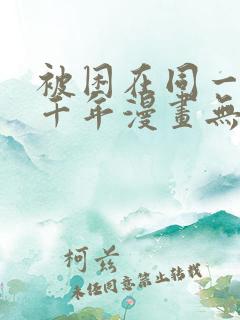 被困在同一
千年漫畫無
柯茲
未经同意禁止转载